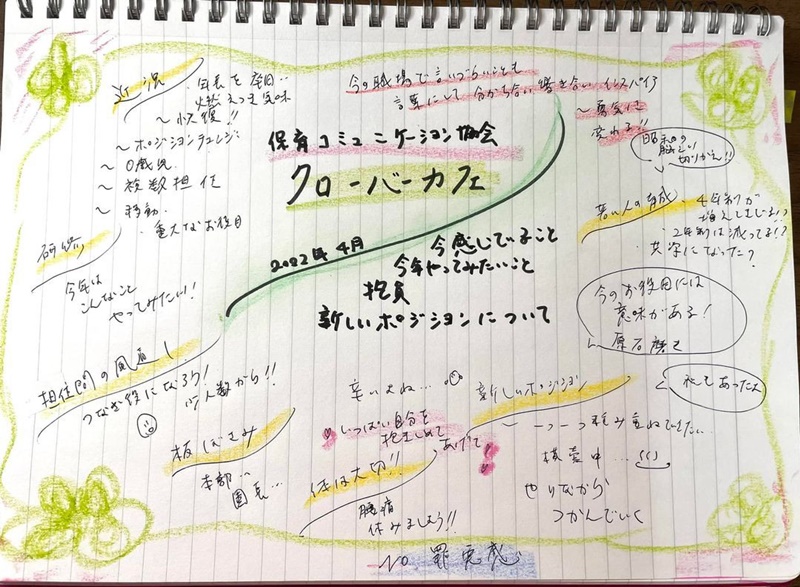 近況
年長を卒園‥
燃えつき気味
〜小復!!
〜ポジションチェンジ
〜0歳児
〜複数担任
〜移動
・重大なお役目
今の職場で言いづらいことも
言葉にして分かち合い響き合いインスパイア
〜勇気に
変わる!!
保育コミュニケーション協会
クローバーカフェ
2022年4月
今感じていること
今年やってみたいこと
抱負
新しいポジションについて
昭和の
脳みい
切りかえ!!
若い人の育成
・4年制が
増えましたよ!?
・2年制は減ってる!?
・共学になった?
今のお役目には
意味がある!
原石磨き
私もあったよ
研修
今年は
こんなこと
やってみたい!
担任間の風通し
つなぎ役になろう!
少人数から!!
板ばさみ
本部‥
園長‥
辛いよね‥
いっぱい自分を
抱きしめて
あげて
体は大切!!
腰痛
休みましょう!!
No 罪悪感
新しいポジション
一つ一つ積み重ねていきたい‥
模索中‥
やりながら
つかんでいく